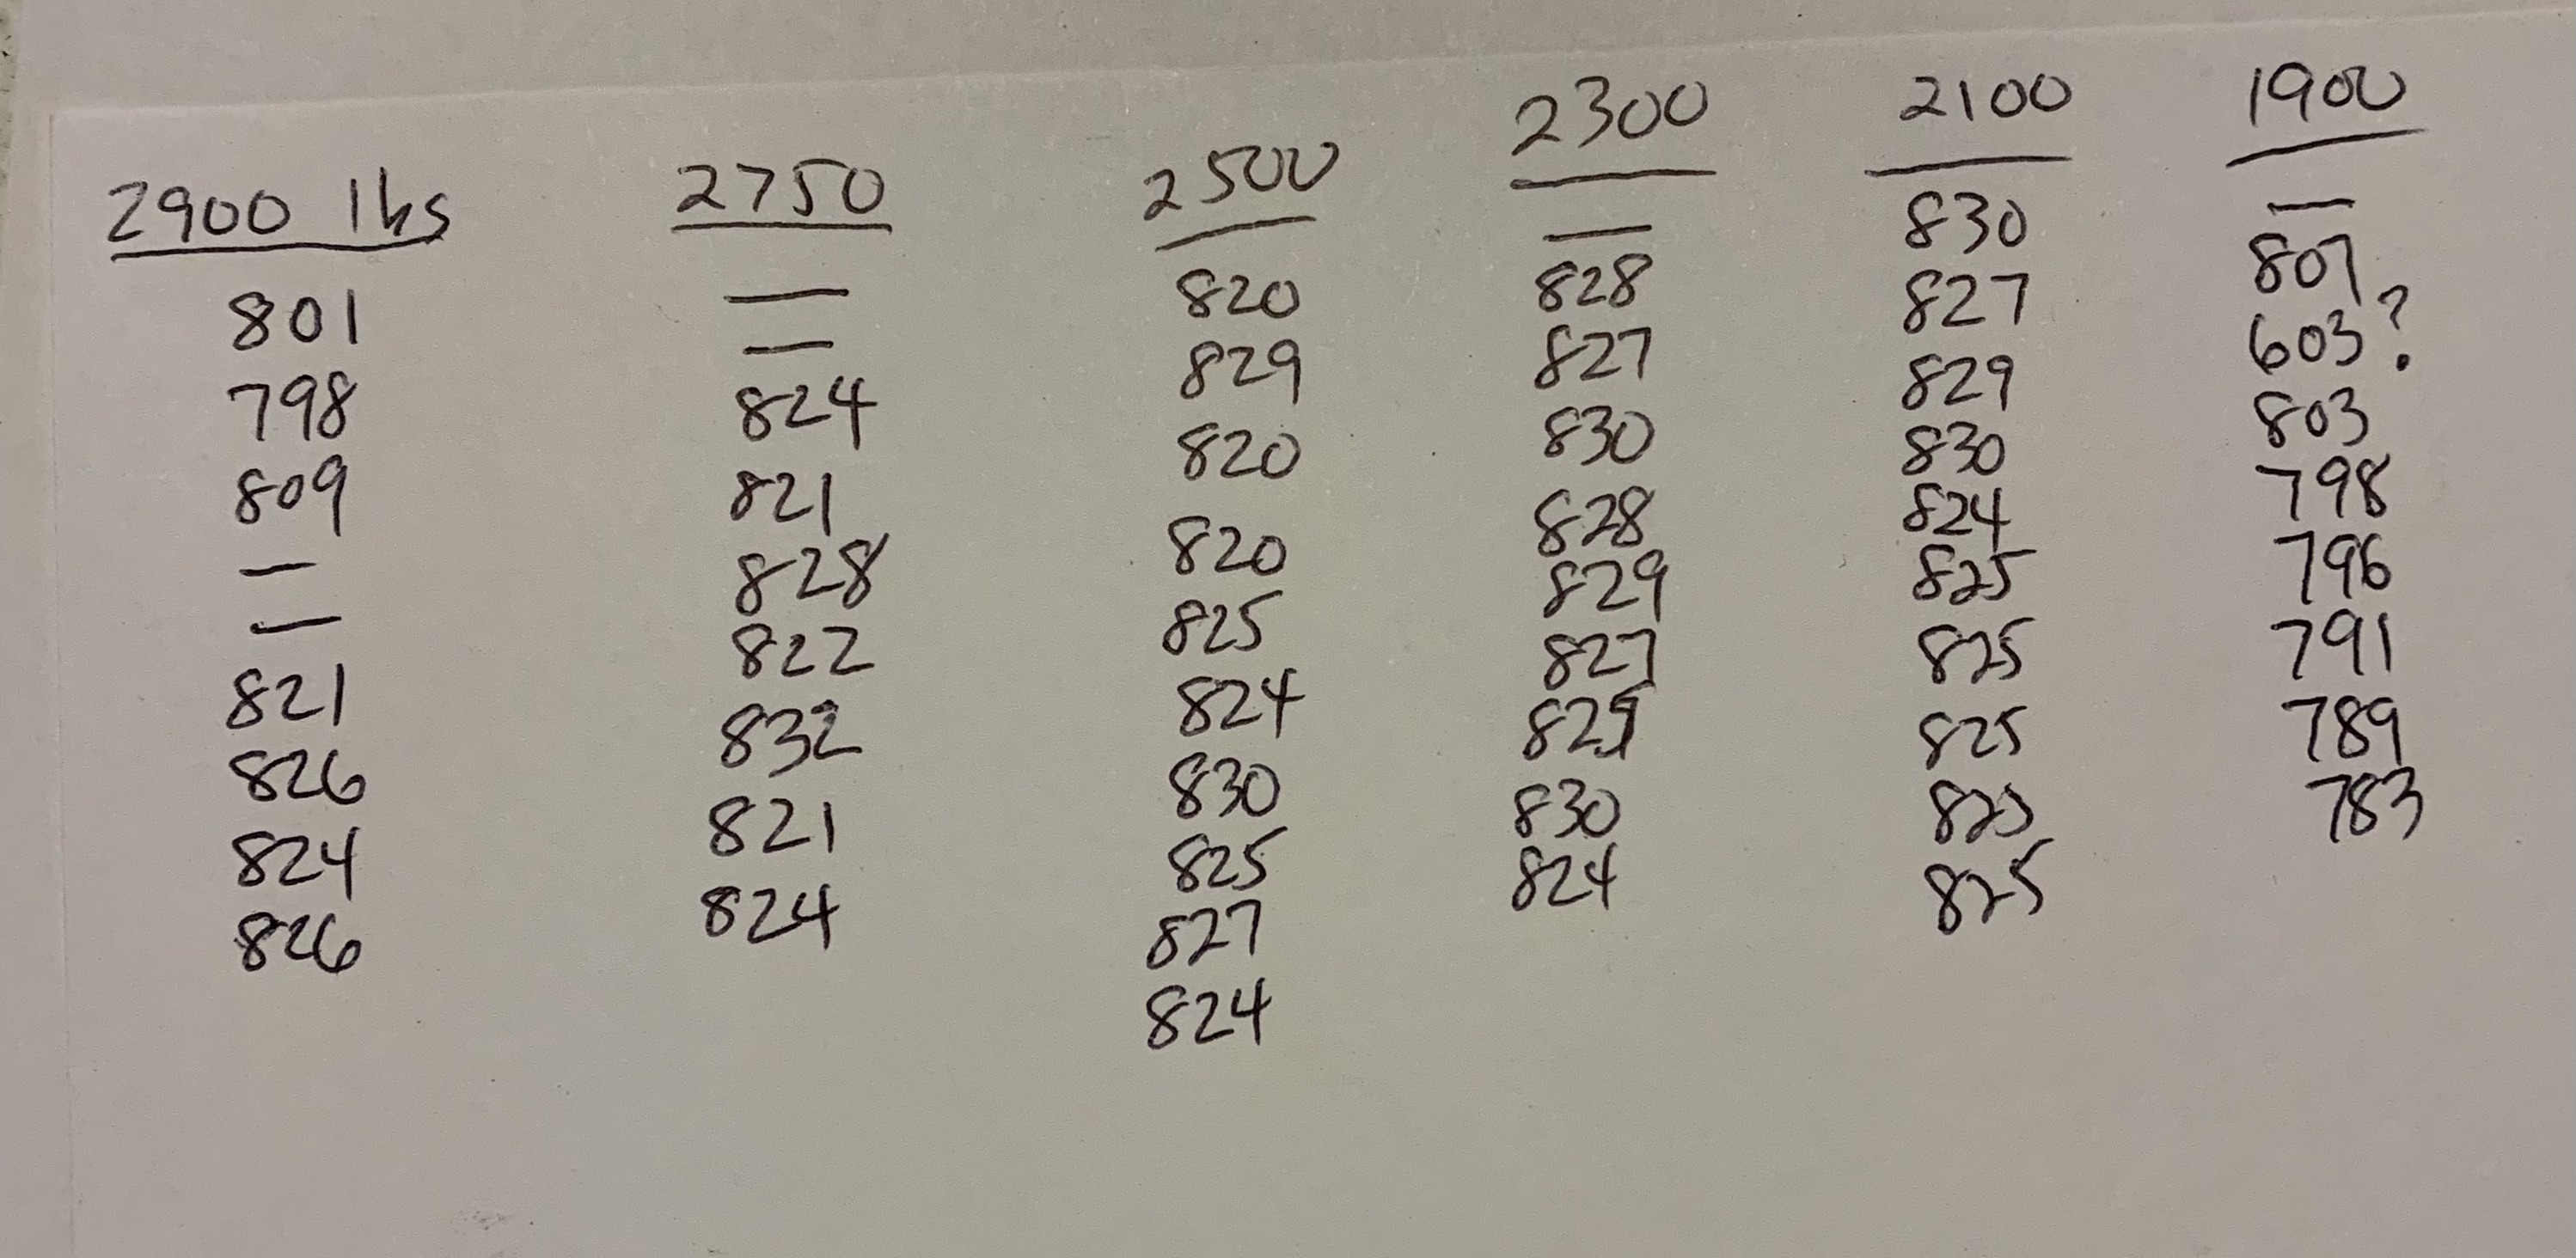 2900 lbs 2750 2500 2300 2100 1900
801 — 820 — 830 —
798 — 829 828 827 807
809 824 820 827 829 603?
— 821 820 830 830 803
— 828 825 828 824 798
821 822 824 829 825 796
826 832 830 827 825 791
824 821 825 829 825 789
826 824 827 830 825 783
824 824 825